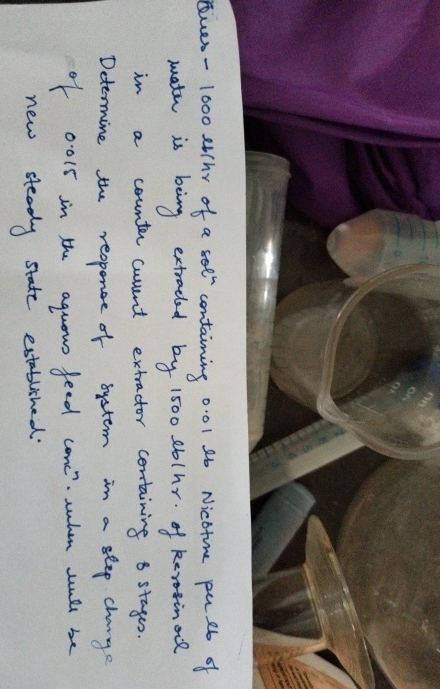 Ques- 1000 lb/hr of a solⁿ containing 0.01 lb Nicotine per lb of
water is being extracted by 1500 lb/hr. of kerosin oil
in a counter current extractor containing 8 stages.
Determine the response of system in a step change
of 0.015 in the aquous feed concⁿ. when will be
new steady state established.